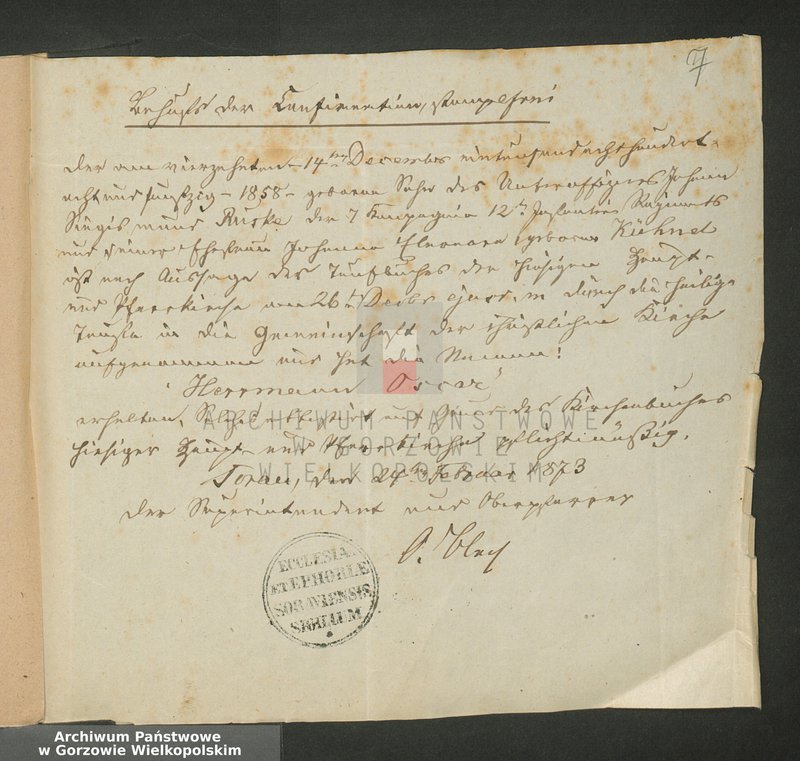 7
Behufs der Confirmation, stempelfrei
Der am vierzehnten - 14ten December eintausendachthundert-
achtundfunfzig - 1858 - geborene Sohn des Unteroffiziers Johann
Siegismund Ruske der 7 Compagnie 12ten Infanterie Regiments
und seiner Ehefrau Johanna Eleonore geborene Kühnel
ist nach Aussage des Taufbuches der hiesigen Haupt-
und Pfarrkirche am 26t Decbr ejusd. m durch die heilige
Taufe in die Gemeinschaft der christlichen Kirche
aufgenommen und hat die Namen:
"Herrmann Oscar"
erhalten. Solches attestirt auf Grund des Kirchenbuches
hiesiger Haupt- und Pfarrkirche pflichtmäßig.
Sorau, den 24ten Februar 1873
Der Superintendent und Oberpfarrer
ECCLESIAE
ET EPHORIAE
SORAVIENSIS
SIGILLUM
ARCHIWUM PAŃSTWOWE
W GORZOWIE
WIELKOPOLSKIM
Archiwum Państwowe
w Gorzowie Wielkopolskim